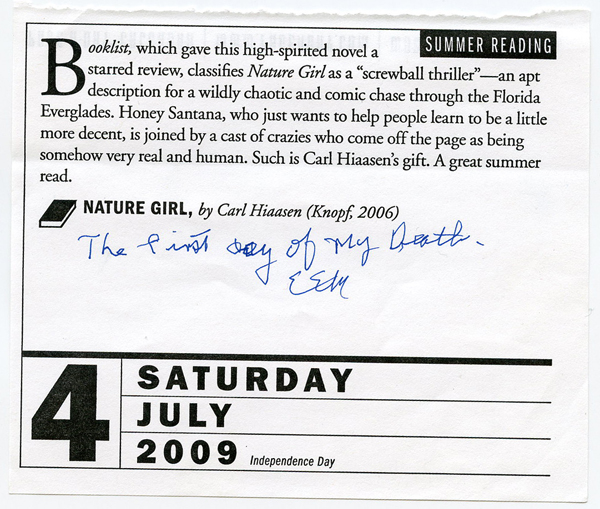 SUMMER READING
Booklist, which gave this high-spirited novel a
starred review, classifies Nature Girl as a “screwball thriller”—an apt
description for a wildly chaotic and comic chase through the Florida
Everglades. Honey Santana, who just wants to help people learn to be a little
more decent, is joined by a cast of crazies who come off the page as being
somehow very real and human. Such is Carl Hiaasen’s gift. A great summer
read.
NATURE GIRL, by Carl Hiaasen (Knopf, 2006)
The First Day of My Death.
ESM
4
SATURDAY
JULY
2009 Independence Day